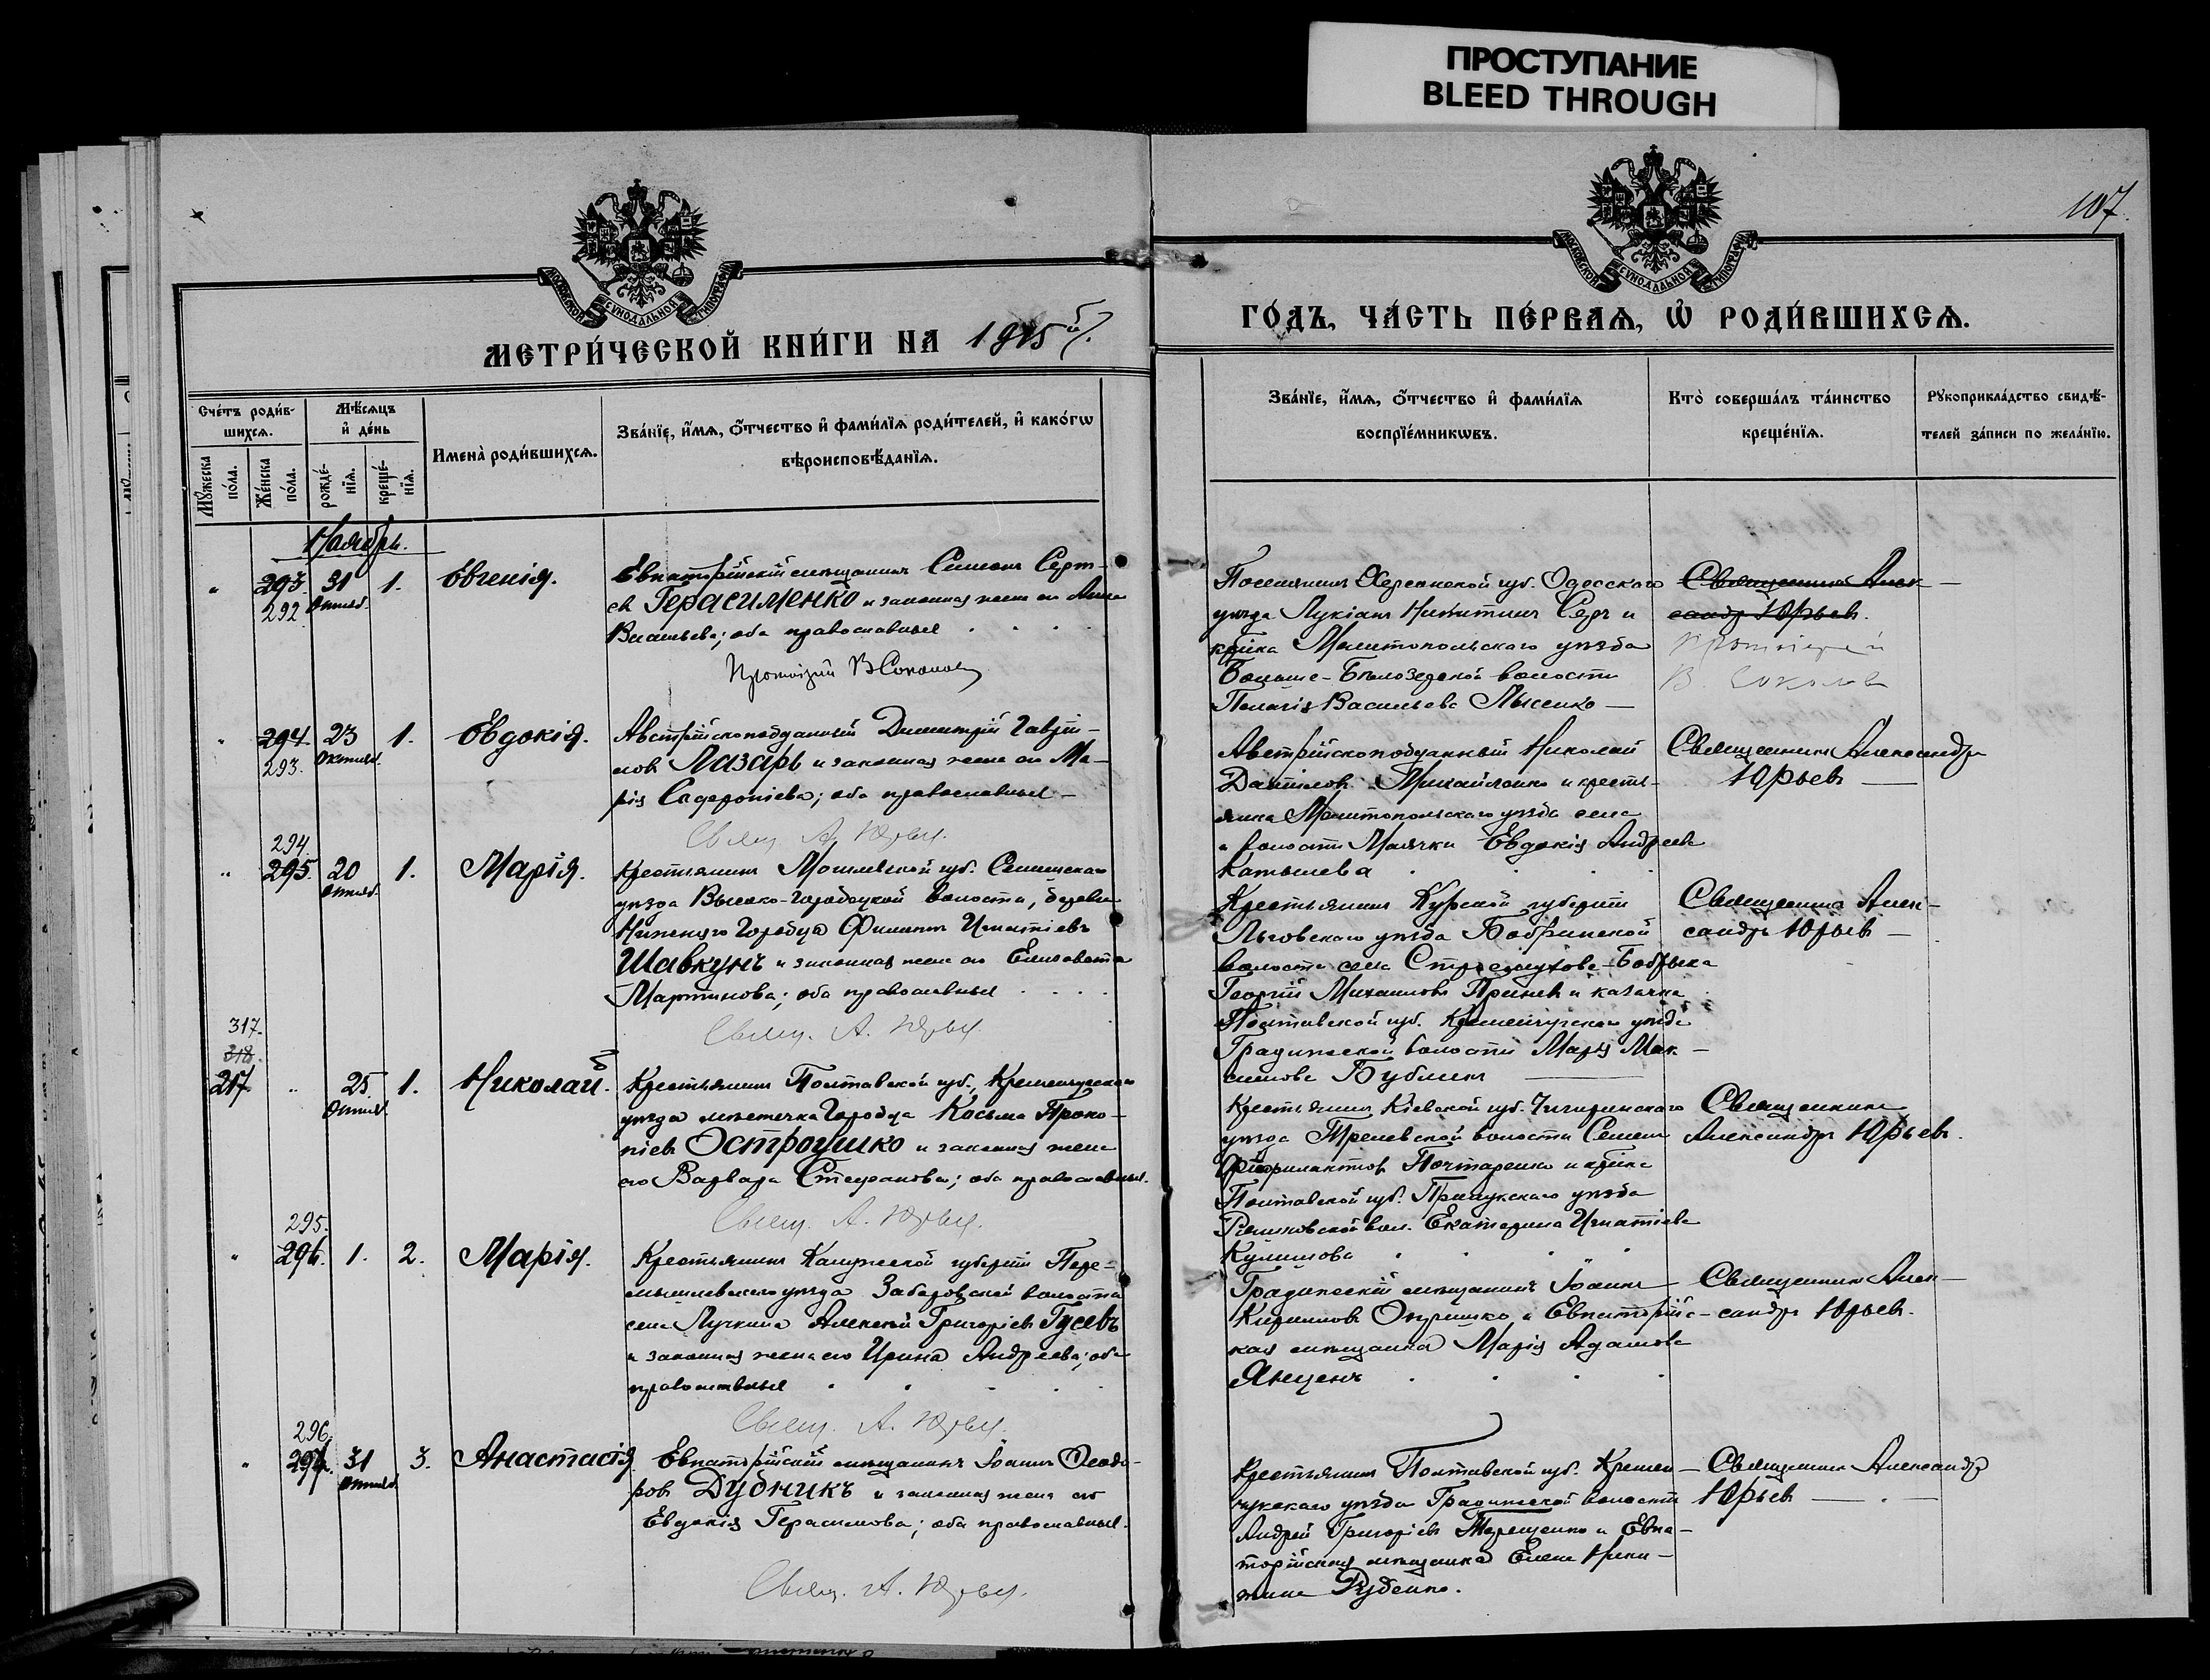 ПРОСТУПАНИЕ
BLEED THROUGH
107.
МОСКОВСКОЙ СѴНОДАЛЬНОЙ ТИПОГРАФІИ
МОСКОВСКОЙ СѴНОДАЛЬНОЙ ТИПОГРАФІИ
МЕТРИ́ЧЕСКОЙ КНИ́ГИ НА 1915й г.
ГО́ДЪ, ЧА́СТЬ ПЕ́РВАѦ, Ѡ҆ РОДИ́ВШИХСѦ.
Сче́тъ роди́в-
шихсѧ.
Мѣ́сѧцъ
и҆ де́нь
Мꙋ́жеска
по́ла.
Же́нска
по́ла.
рожде́-
нїѧ.
креще́-
нїѧ.
Имена̀ роди́вшихсѧ.
Зва́нїе, и҆́мѧ, ѻ҆́тчество и҆ фами́лїѧ роди́телей, и҆ како́гѡ
вѣроисповѣ́данїѧ.
Зва́нїе, и҆́мѧ, ѻ҆́тчество и҆ фами́лїѧ
воспрїе́мникѡвъ.
Кто̀ соверша́лъ та́инство
креще́нїѧ.
Рꙋкоприкла́дство свидѣ́-
телей за́писи по жела́нїю.
Ноябрь.
" 293 31 1. Евгенія.
292 Октяб.
Евпаторійскій мѣщанинъ Симеонъ
Герасименко и законная жена его Анна
Васильева; оба православные
Протоіерей В Соколов
Поселянинъ Херсонской губ. Одесскаго
уѣзда Лукіанъ Никитинъ и
кр-ка Мелитопольскаго уѣзда
Больше-Бѣлозерской волости
Пелагія Васильева Лысенко
Священникъ Алек-
сандръ Юрьевъ.
Протоіерей
В. Соколов
" 294. 23 1. Евдокія.
293. Октяб.
Австрійскоподданный Димитрій Гаврі-
ловъ Лазарь и законная жена его Ма-
рія; оба православные
Свящ. А. Юрьев.
Австрійскоподданный Николай
Даніиловъ Михайленко и кресть-
янка Мелитопольскаго уѣзда села
и волости Маячки Евдокія Андреева
Священникъ Александръ
Юрьевъ
294.
" 295. 20 1. Марія.
Октяб.
Крестьянинъ Могилевской губ. Сеннинскаго
уѣзда Высоко-Городецкой волости, деревни
Городца Филиппъ Игнатіевъ
Шавкунъ и законная жена его Елисавета
Мартинова; оба православные
Свящ. А. Юрьев
Крестьянинъ Курской губерніи
Льговскаго уѣзда Бобрикской
волости села
Георгій Михаиловъ и казачка
Полтавской губ. Кременчугскаго уѣзда
Градижской волости Марія Мак-
симова Бубликъ
Священникъ Алек-
сандръ Юрьевъ
317.
318.
217. " 25 1. Николай.
Октяб.
Крестьянинъ Полтавской губ., Кременчугскаго
уѣзда мѣстечка Городца Косьма Проко-
піевъ Остроушко и законная жена
его Варвара Стефанова; оба православные.
Свящ. А. Юрьев.
Крестьянинъ Кіевской губ. Чигиринскаго
уѣзда волости Семенъ
Почтаренко и кр-ка
Полтавской губ. Прилукскаго уѣзда
вол. Екатерина Игнатіева
Священникъ
Александръ Юрьевъ.
295.
" 296. 1. 2. Марія.
Крестьянинъ Калужской губерніи Пере-
мышльскаго уѣзда Заборовской волости
села Лучкина Алексѣй Григоріевъ Гусевъ
и законная жена его Ирина Андреева; оба
православные
Свящ. А. Юрьев.
Градижскій мѣщанинъ Іоаннъ
Кирилловъ и Евпаторійс-
кая мѣщанка Марія Адамова
Яненцъ
Священникъ Алек-
сандръ Юрьевъ.
296.
" 297. 31 3. Анастасія
Октяб.
Евпаторійскій мѣщанинъ Іоаннъ Ѳеодо-
ровъ Дудникъ и законная жена его
Евдокія Герасимова; оба православные.
Свящ. А. Юрьев.
Крестьянинъ Полтавской губ. Кремен-
чугскаго уѣзда Градижской волости
Андрей Григоріевъ Терещенко и Евпа-
торійская мѣщанка Елена Ники-
тина Руденко.
Священникъ Александръ
Юрьевъ